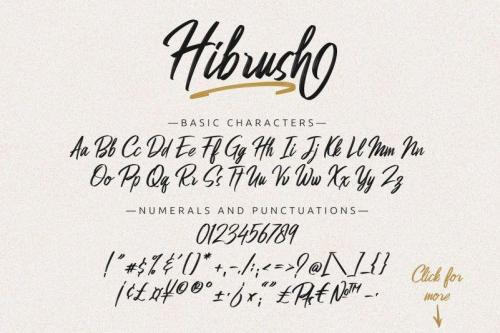 Hibrush
—BASIC CHARACTERS—
Aa Bb Cc Dd Ee Ff Gg Hh Ii Jj Kk Ll Mm Nn
Oo Pp Qq Rr Ss Tt Uu Vv Ww Xx Yy Zz
—NUMERALS AND PUNCTUATIONS—
0123456789
!"#$%&'()*+,-./:;<=>?@[\]_{}
¡¢£¤¥©®°±·¿×;“”£₧€№™–·
Click for
more